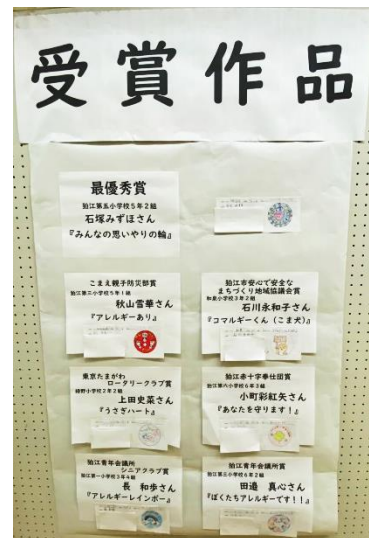 受賞作品
最優秀賞
狛江第五小学校5年2組
石塚みずほさん
『みんなの思いやりの輪』
こまえ親子防災部賞
狛江第二小学校5年1組
秋山雪華さん
『アレルギーあり』
狛江市安心で安全な
まちづくり地域協議会賞
和泉小学校3年2組
石川永和子さん
『コマルギーくん(こま犬)』
東京たまがわ
ロータリークラブ賞
緑野小学校2年2組
上田史菜さん
『うさぎハート』
狛江赤十字奉仕団賞
狛江第六小学校6年3組
小町彩紅矢さん
『あなたを守ります!』
狛江青年会議所
シニアクラブ賞
狛江第一小学校3年4組
長 和歩さん
『アレルギーレインボー』
狛江青年会議所賞
狛江第三小学校6年2組
田邉 真心さん
『ぼくたちアレルギーです!!』